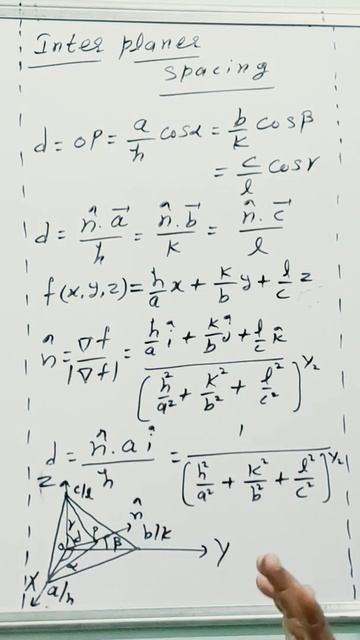 Inter planer
spacing
d = OP = a/h cosα = b/k cosβ
= c/l cosγ
d = n̂·a⃗/h = n̂·b⃗/k = n̂·c⃗/l
f(x,y,z) = h/a x + k/b y + l/c z
n̂ = ∇f/|∇f| = (h/a î + k/b ĵ + l/c k̂)/(h²/a² + k²/b² + l²/c²)^1/2
d = n̂·a î/h = 1/(h²/a² + k²/b² + l²/c²)^1/2
Z
c/l
n̂
γ d P β b/k
O Y
α
X a/h